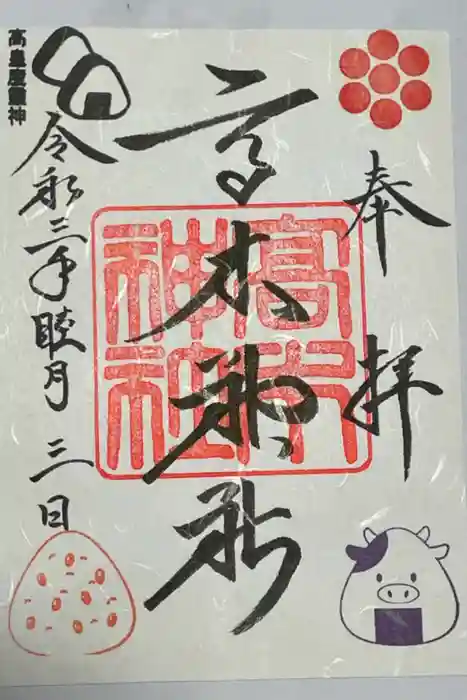 奉拝
高木神社
高木神社
令和三年睦月三日
高皇産霊神